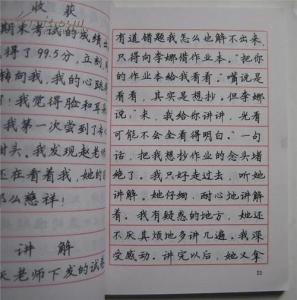 收获
期末考试的成绩出
得了99.5分,立刻,
转向我,我的心跳
!我觉得脸和耳
我第一次尝到了
甜头。我发现赵老师
还在看着我,她的
那么慈祥!
讲解
天老师下发的试卷
有道错题我怎么也解不出来,
只得向李娜借作业本。“把你
的作业本给我看看。”嘴说是
看看,其实是想抄。但李娜
说:“来,我给你讲讲,光看
可能不会全看得明白。”一句
话,把我想抄作业的念头堵
绝了。我只好走过去,听她
讲解。她仔细、耐心地讲解
着。我有疑惑的地方,她还
不厌其烦地多讲几遍。我深
受感动。讲完以后,她又拿